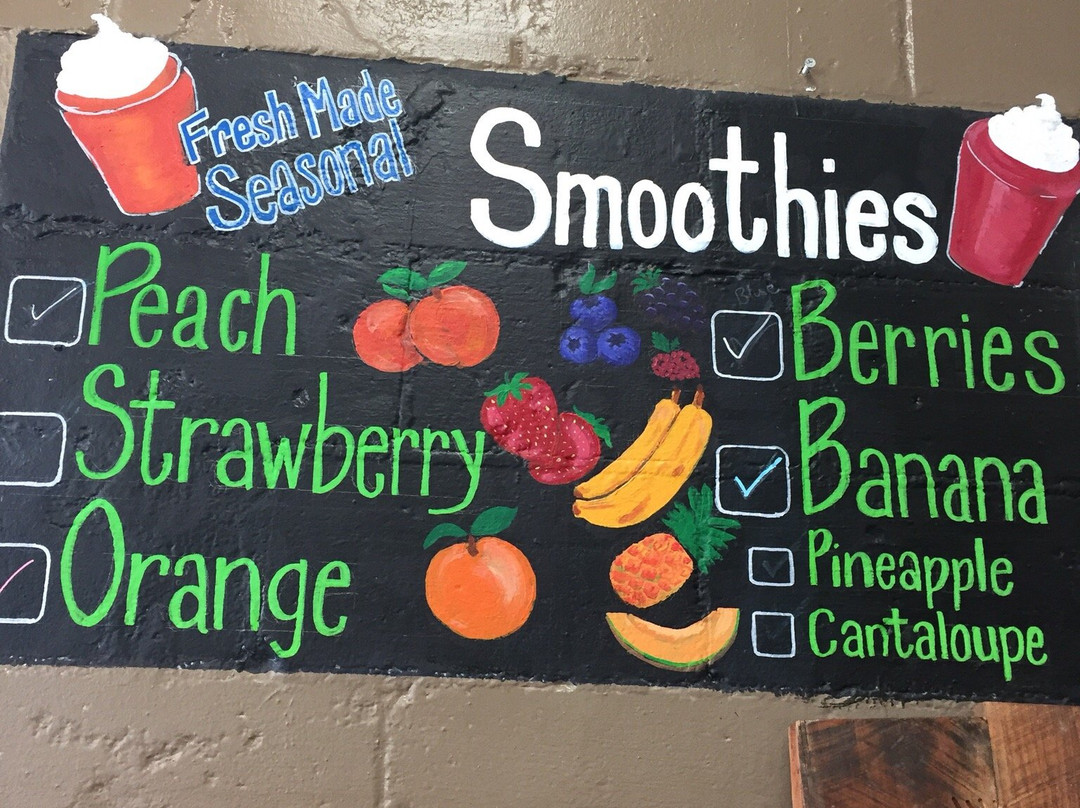 Fresh Made
Seasonal
Smoothies
Peach
Strawberry
Orange
Blue
Berries
Banana
Pineapple
Cantaloupe